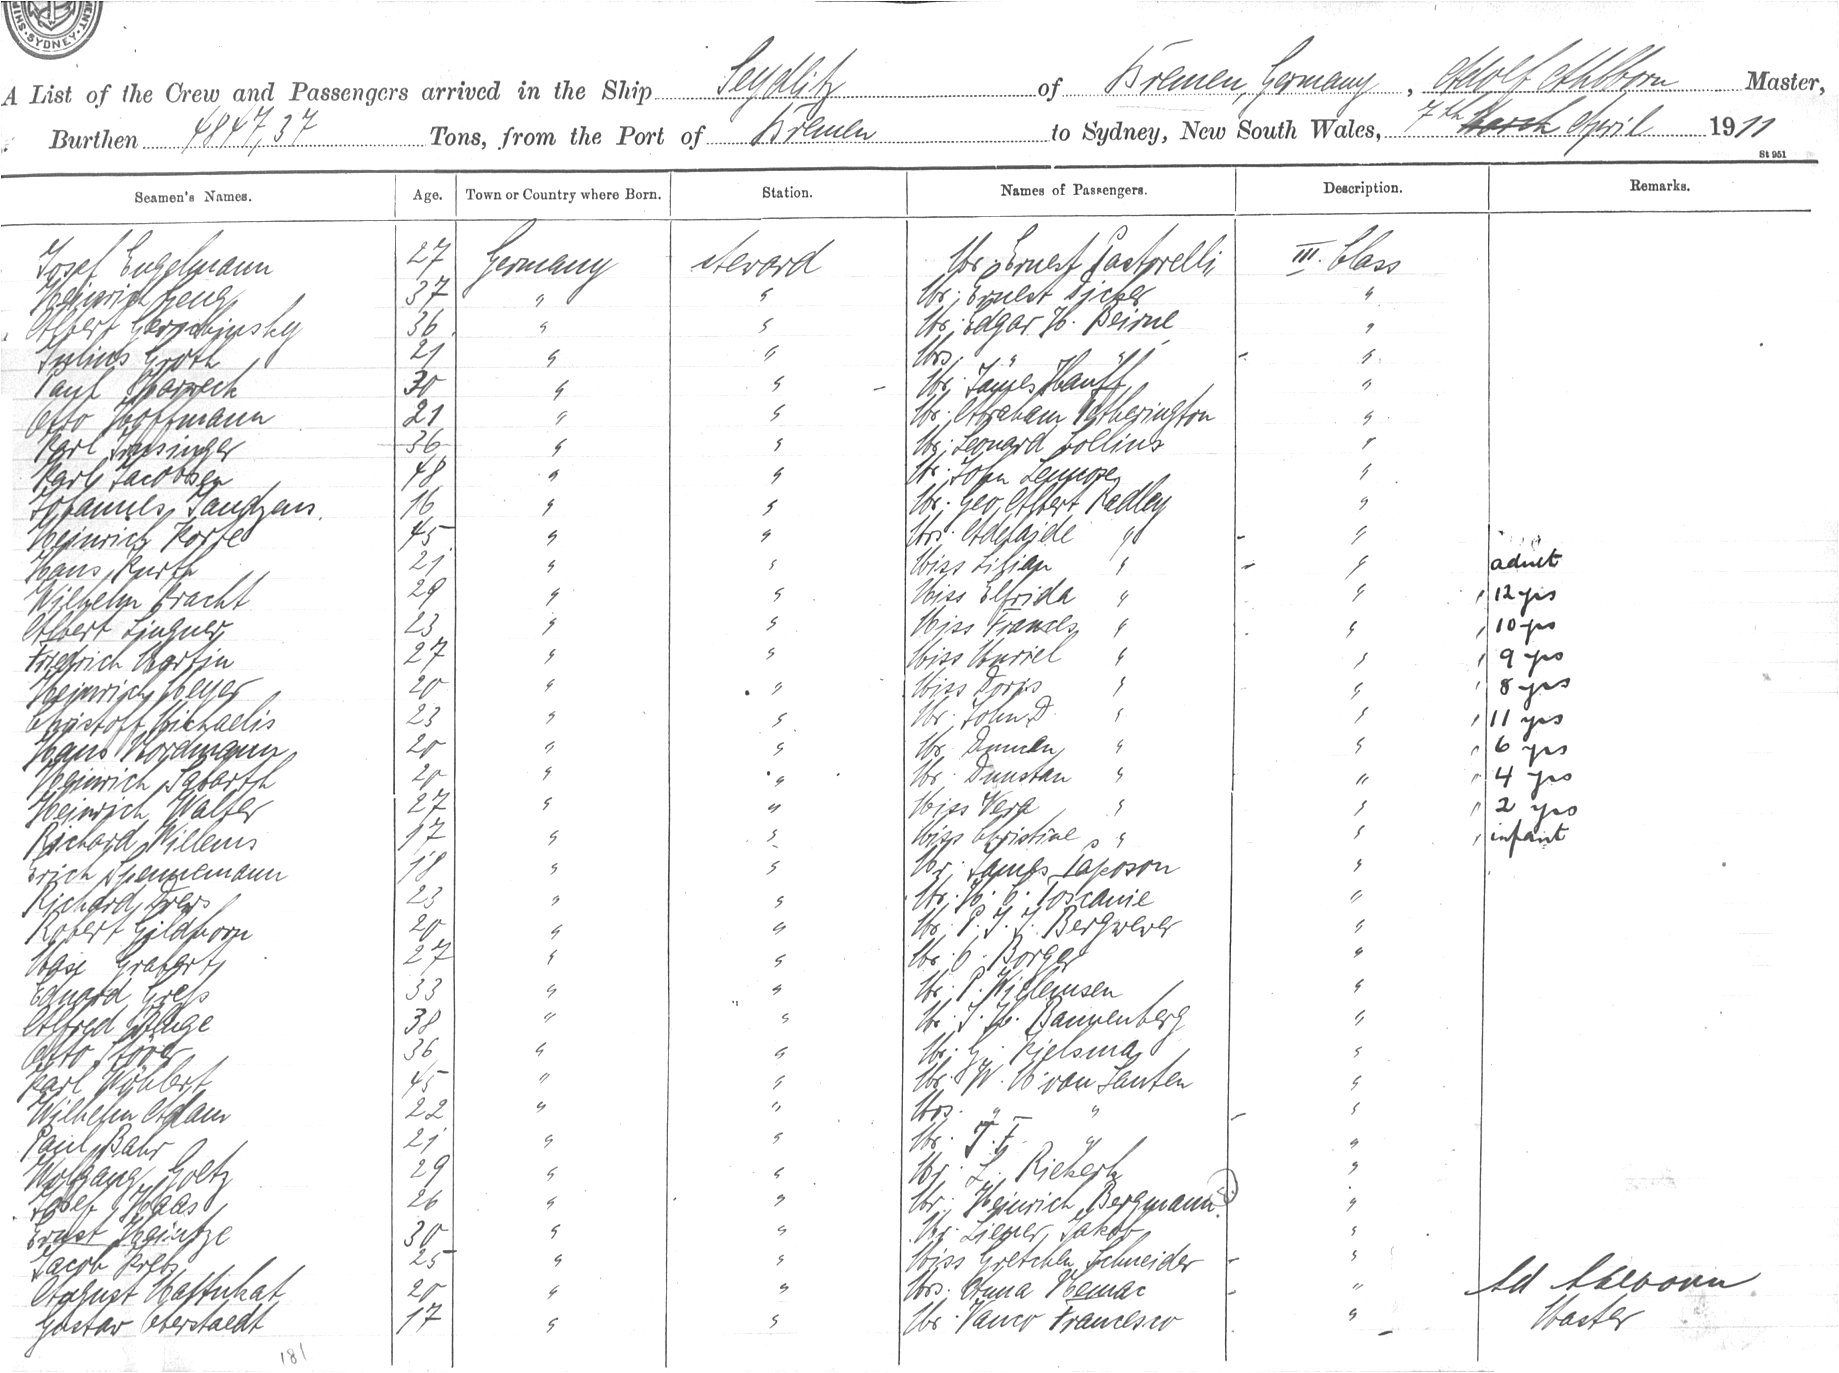 SYDNEY
A List of the Crew and Passengers arrived in the Ship Seydlitz of Bremen, Germany, Adolf Ahlborn Master,
Burthen 4847,37 Tons, from the Port of Bremen to Sydney, New South Wales, 7th March April 1911
St 951
Seamen's Names. Age. Town or Country where Born. Station. Names of Passengers. Description. Remarks.
Josef Engelmann 27 Germany steward Mr. Ernest Pastorelli III. Class
Heinrich Geng 37 " " Mr. Ernest Dicker "
Albert 36 " " Mr. Edgar H. Beirne "
Julius Groth 21 " " Mrs. " " "
Paul 30 " " Mr. James Hauff "
Otto Hoffmann 21 " " Mr. Abraham Etherington "
Karl 36 " " Mr. Leonard Collins "
Karl Jacobsen 48 " " Mr. John "
Johannes 16 " " Mr. Geo. Albert Radley "
Heinrich Korte 45 " " Mrs. Adelaide " "
Hans Kurth 21 " " Miss Lilian " " adult
Wilhelm Kracht 29 " " Miss Elfrida " " 12 yrs
Albert Lingner 23 " " Miss Frances " " 10 yrs
Friedrich Martin 27 " " Miss Muriel " " 9 yrs
Heinrich Meyer 20 " " Miss Doris " " 8 yrs
Christoff Michaelis 23 " " Mr. John D. " " 11 yrs
Hans Nordmann 20 " " Mr. Duncan " " 6 yrs
Heinrich Sabarth 20 " " Mr. Dunstan " " 4 yrs
Heinrich Walter 27 " " Miss Vera " " 2 yrs
Richard Willems 17 " " Miss Christine " " infant
Erich Spennemann 18 " " Mr. James "
Richard Drews 23 " " Mr. H. C. Toscanie "
Robert Gildhorn 20 " " Mr. P. J. J. Bergwever "
Max Grabert 27 " " Mr. C. Borger "
Eduard Gress 33 " " Mr. P. Willemsen "
Alfred 38 " " Mr. J. H. Bannenberg "
Otto Stöver 36 " " Mr. G. Rielsma "
Karl Wöhlert 45 " " Mr. W. H. van Santen "
Wilhelm Adam 22 " " Mrs. " " "
Paul Bahr 21 " " Mr. T. F. " "
Wolfgang Goetz 29 " " Mr. L. Riekert "
Josef Haas 26 " " Mr. Heinrich Bergmann "
Ernst Heintze 30 " " Mr. Jakob "
Jacob Krebs 25 " " Miss Gretchen Schneider "
August 20 " " Mrs. Anna Hemac " Ad Ahlborn
Gustav Oberstaedt 17 " " Mr. Vanco Francesco " Master
181